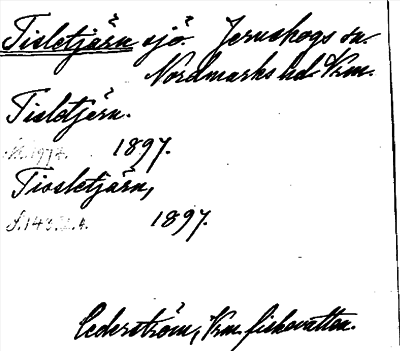 Tisletjärn sjö. Järnskogs sn.
Nordmarks hd Vrm.
Tisletjern.
1897.
Tiosletjärn,
S. 143. 1897.
Cederström, Vrm. fiskevatten.